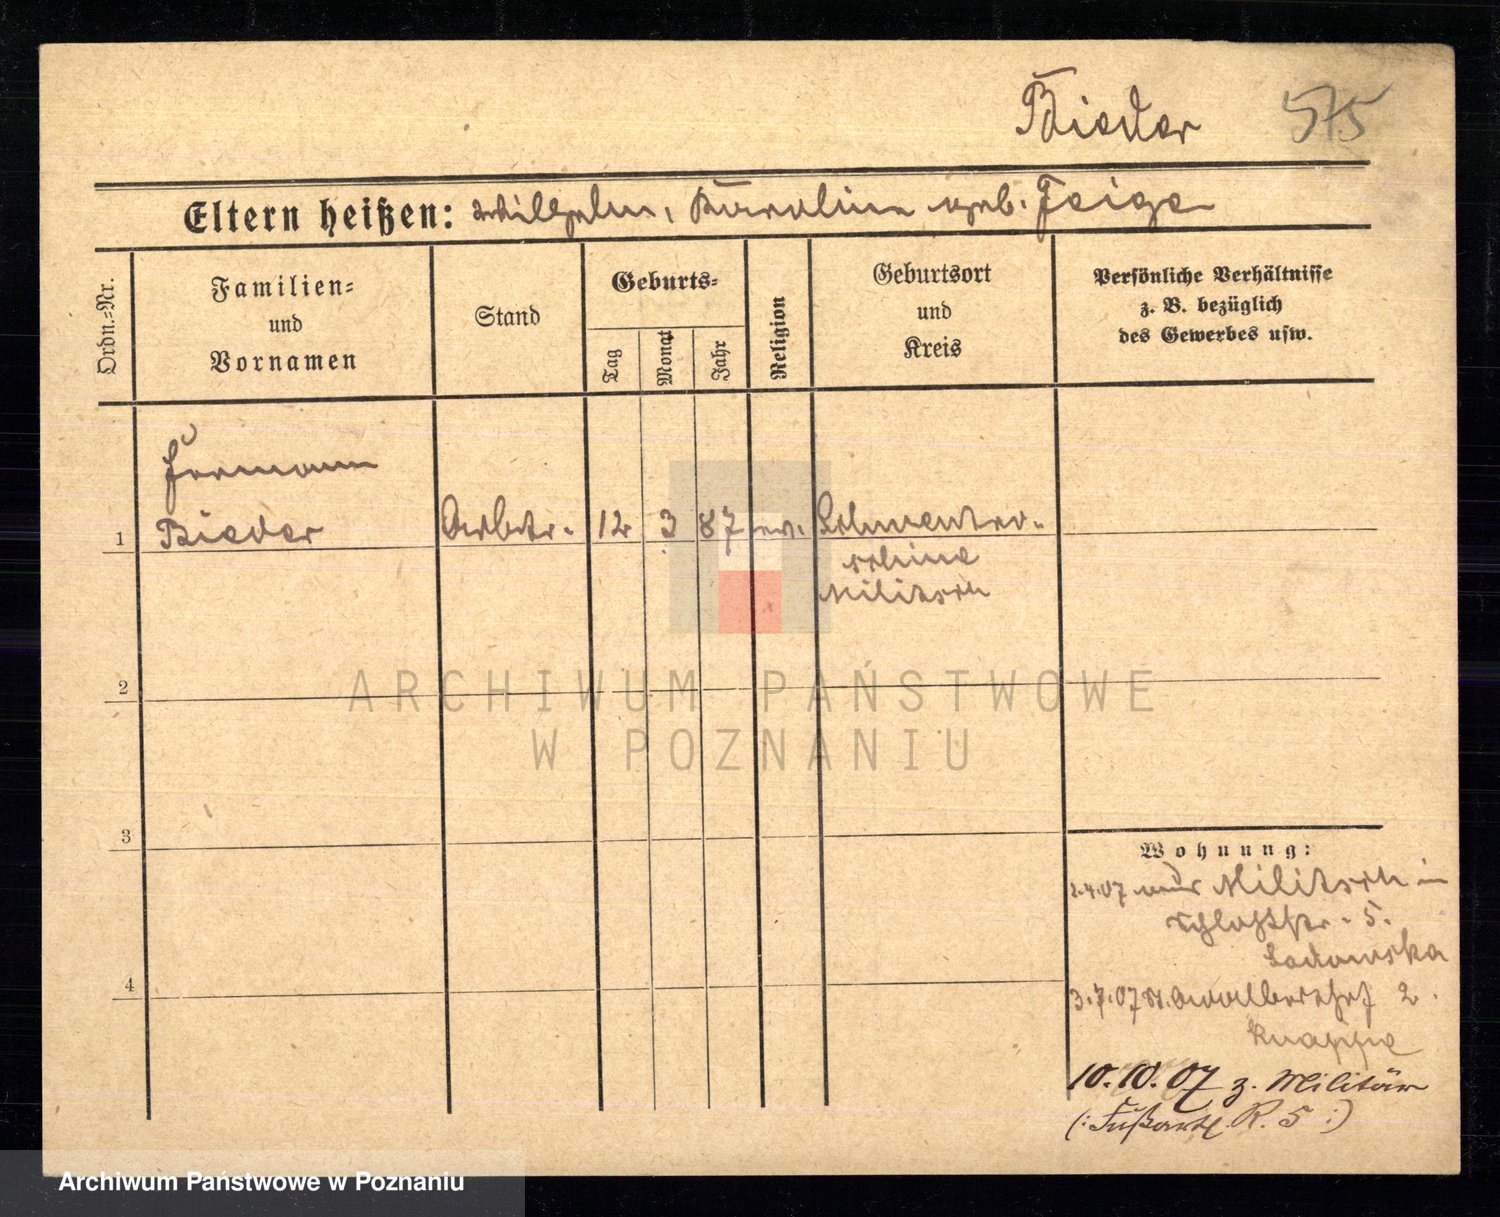 Bieder 575
Eltern heißen: Wilhelm, Karoline geb. Feige
Ordn.-Nr.
Familien-
und
Vornamen
Stand
Geburts-
Tag
Monat
Jahr
Religion
Geburtsort
und
Kreis
Persönliche Verhältnisse
z. B. bezüglich
des Gewerbes usw.
Hermann
1 Bieder Arbtr. 12 3 87 ev. Schwentro-
schine
Militsch
2
ARCHIWUM PAŃSTWOWE
W POZNANIU
3
Wohnung:
2.4.07 aus Militsch in
Schloßstr. 5.
Sadowska
4
3.7.07 St. 2.
Knappe
10.10.07 z. Militär
(: Fußartl. R. 5 :)
Archiwum Państwowe w Poznaniu